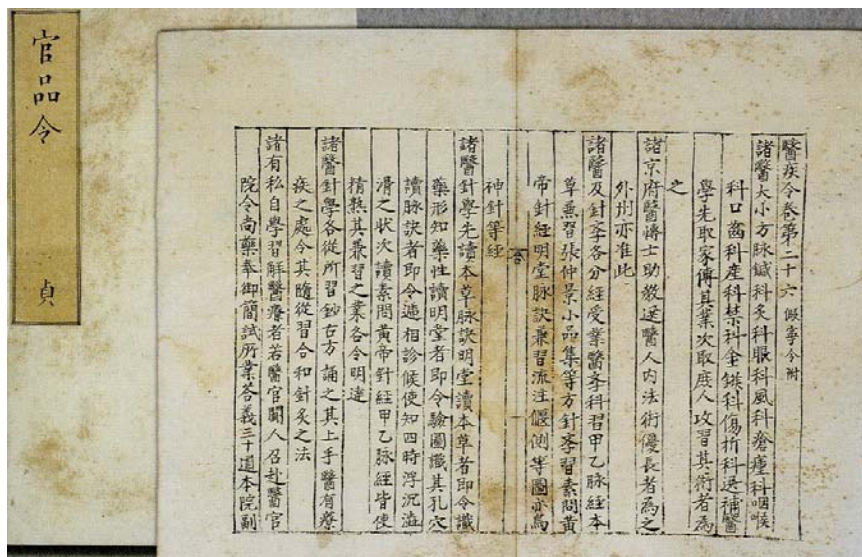 醫疾令卷第二十六 假寧令附
諸醫大小方脉鍼科灸科眼科風科瘡瘇科咽喉
科口齒科產科禁科金鏃科傷折科選補醫
學先取家傳其業次取庶人攻習其術者為
之
諸京府醫博士助教選醫人內法術優長者為之
外州亦准此
諸醫及針斈各分經受業醫斈科習甲乙脉經本
草兼習張仲景小品集等方針斈習素問黃
帝針經明堂脉訣兼習流注偃側等圖亦烏
神針等經
諸醫針學先讀本草脉訣明堂讀本草者即令識
藥形知藥性讀明堂者即令驗圖識其孔穴
讀脉訣者即令遞相診候使知四時浮沉澁
滑之狀次讀素問黃帝針經甲乙脉經皆使
精熟其兼習之業各令明達
諸醫針學各從所習鈔古方誦之其上手醫有療
疾之處令其隨從習合和針灸之法
諸有私自學習解醫療者若醫官闕人召赴醫官
院令尚藥奉御簡試所業答義三十道本院副
官品令 貞